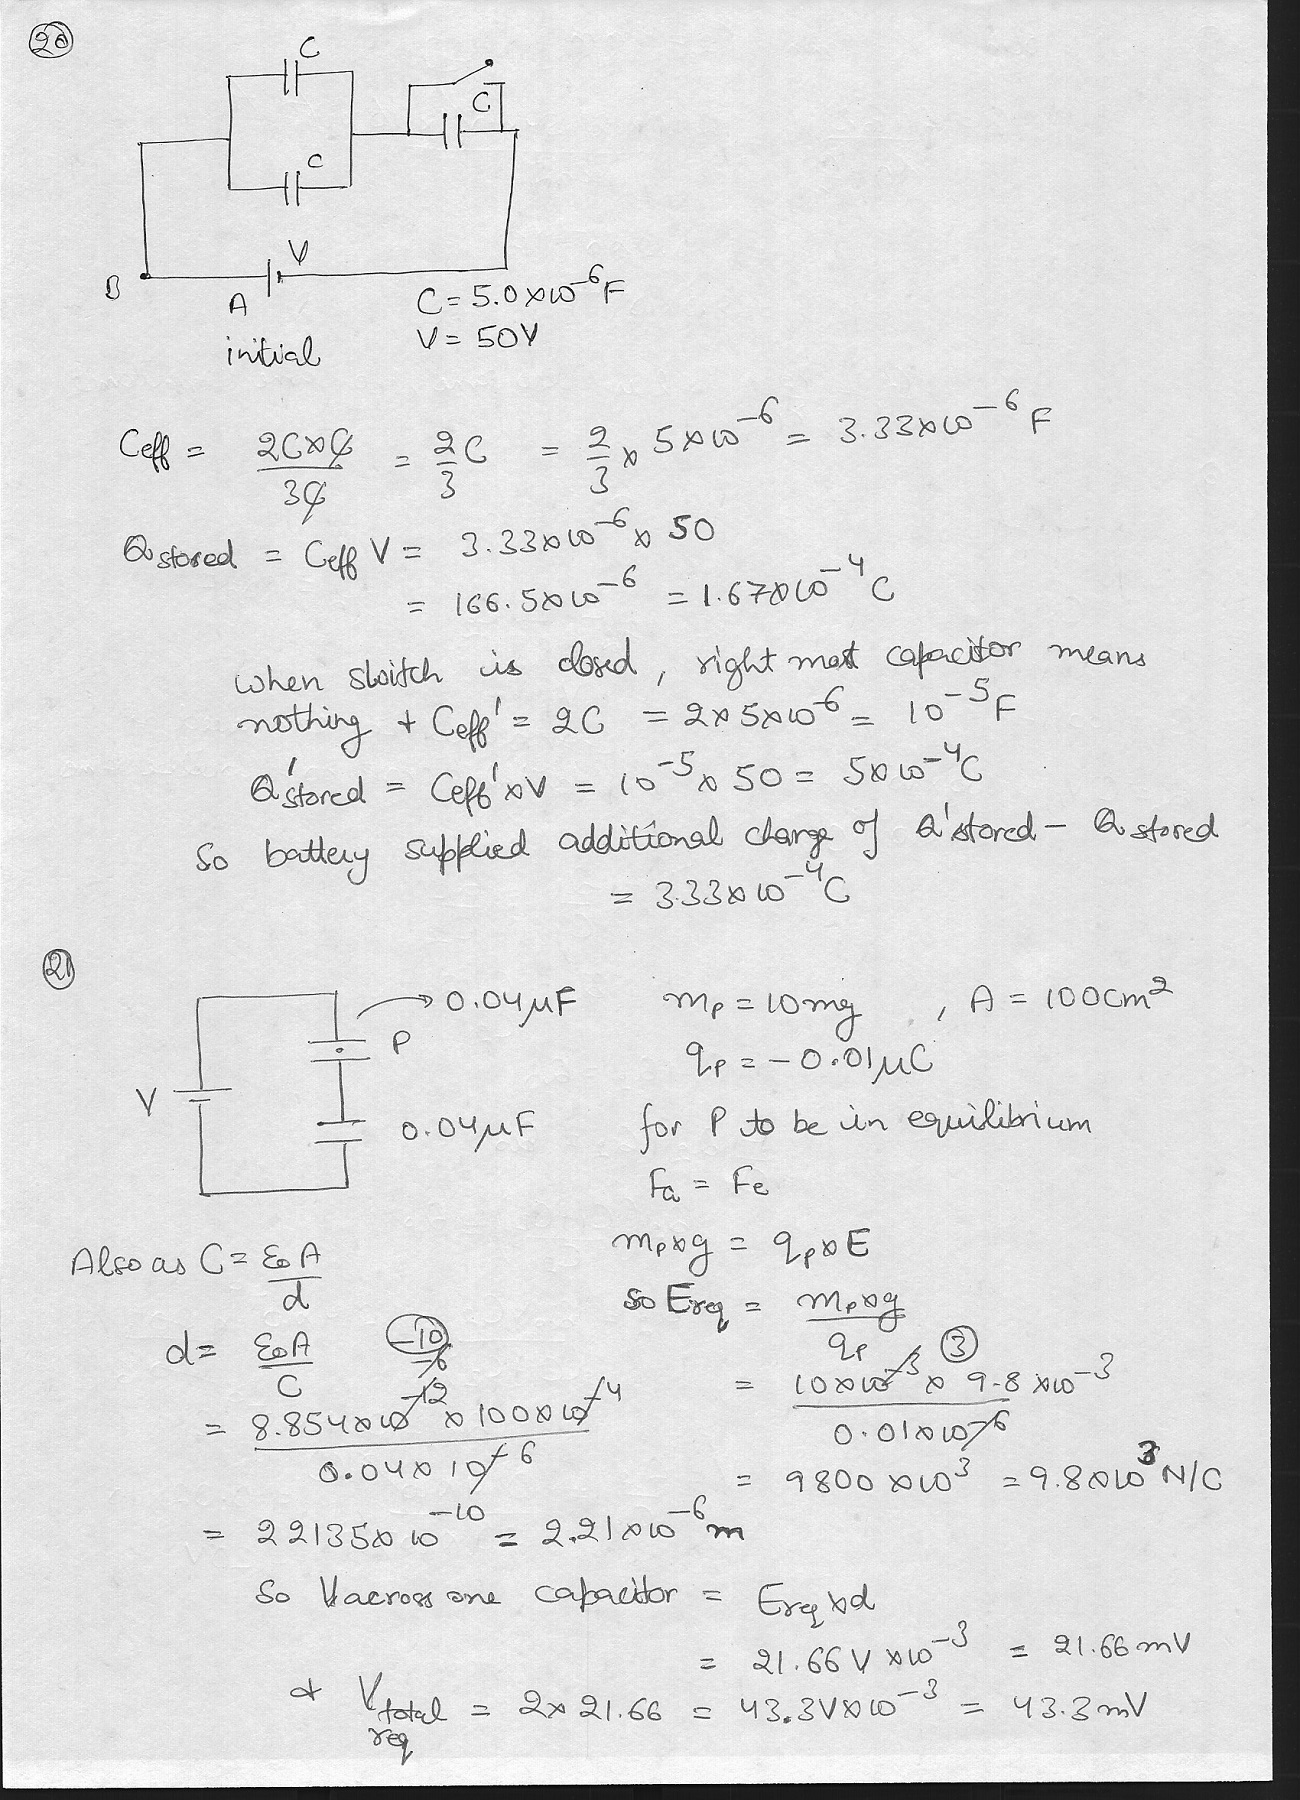 20
C
C
C
V
B
A
C = 5.0×10⁻⁶F
initial
V = 50V
Ceff = 2C×C/3C = 2/3 C = 2/3 × 5×10⁻⁶ = 3.33×10⁻⁶ F
Qstored = Ceff V = 3.33×10⁻⁶ × 50
= 166.5×10⁻⁶ = 1.67×10⁻⁴ C
when switch is closed, right most capacitor means
nothing & Ceff' = 2C = 2×5×10⁻⁶ = 10⁻⁵F
Q'stored = Ceff'×V = 10⁻⁵ × 50 = 5×10⁻⁴C
So battery supplied additional charge of Q'stored - Qstored
= 3.33×10⁻⁴C
21
0.04μF
mp = 10mg, A = 100cm²
P
qp = -0.01μC
V
0.04μF
for P to be in equilibrium
FG = Fe
mp×g = qp×E
Also as C = ε₀A/d
so Ereq = mp×g/qp
d = ε₀A/C
-10
-6
3
= 10×10⁻³ × 9.8 ×10⁻³/0.01×10⁻⁶
= 8.854×10⁻¹² × 100×10⁻⁴/0.04×10⁻⁶
= 9800 ×10³ = 9.8×10³ N/C
= 22135×10⁻¹⁰ = 2.21×10⁻⁶m
So V across one capacitor = Ereq×d
= 21.66V ×10⁻³ = 21.66mV
& Vtotal req = 2×21.66 = 43.3V×10⁻³ = 43.3mV